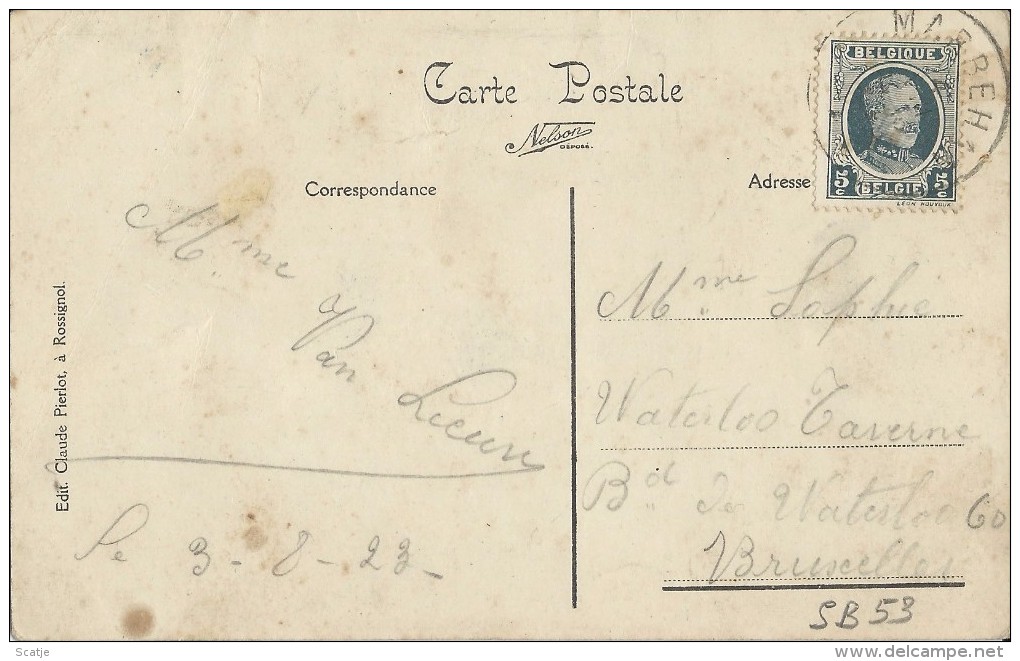 MARBEHA
BELGIQUE
5c BELGIË 5c
LÉON HOUYOUX
Carte Postale
Nelson
DÉPOSÉ.
Correspondance
Adresse
Edit. Claude Pierlot, à Rossignol.
Mme
Van
Le 3-8-23-
Mme Sophie
Waterloo Taverne
Bd de Waterloo 60
Bruxelles
SB 53
Scatje
delcampe.net